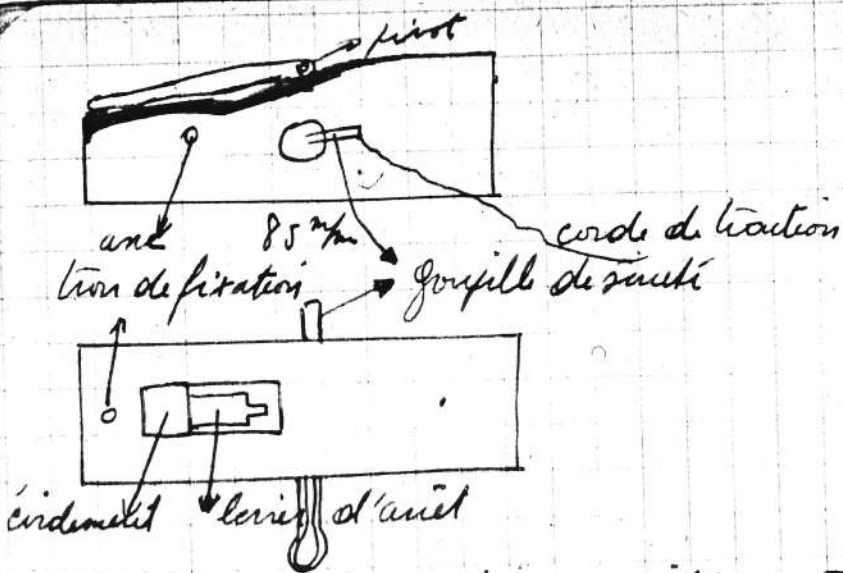 pivot
axe 85 m/m corde de traction
trou de fixation goupille de sureté
évidement levier d'arrêt